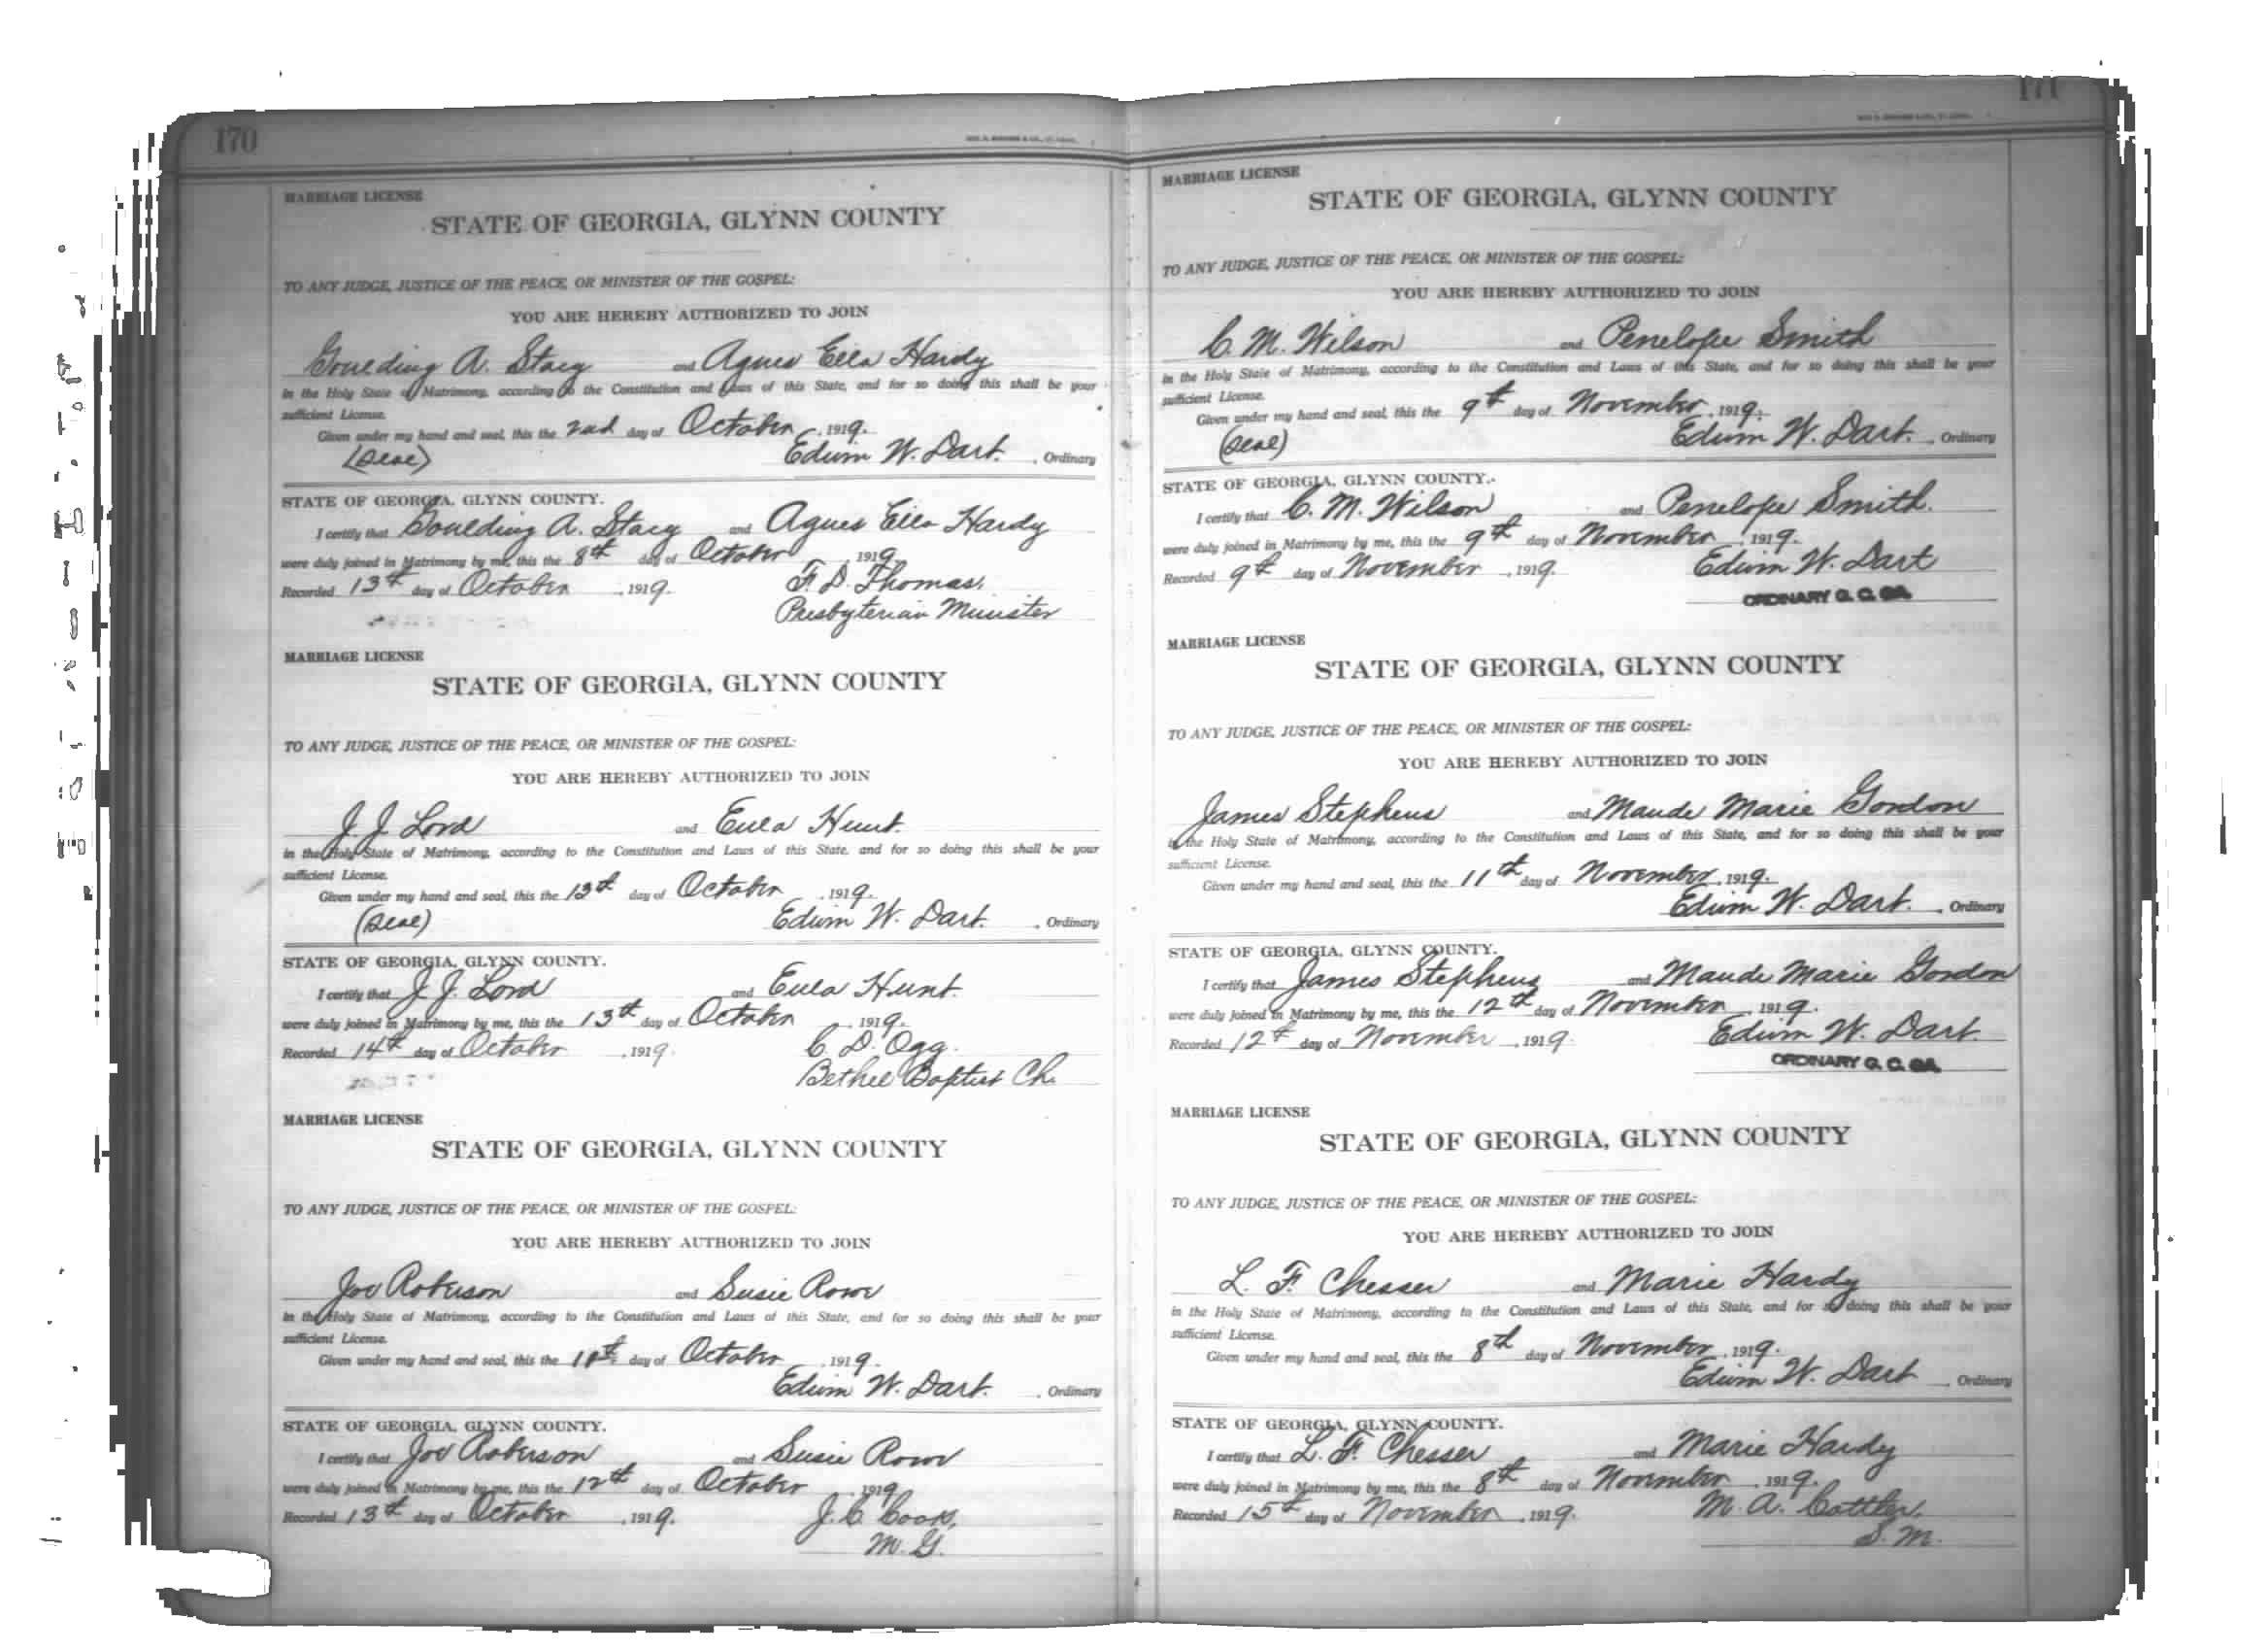 170
MARRIAGE LICENSE
STATE OF GEORGIA, GLYNN COUNTY
TO ANY JUDGE, JUSTICE OF THE PEACE, OR MINISTER OF THE GOSPEL:
YOU ARE HEREBY AUTHORIZED TO JOIN
Goulding A. Stacy and Agnes Ella Hardy
in the Holy State of Matrimony, according to the Constitution and Laws of this State, and for so doing this shall be your
sufficient License.
Given under my hand and seal, this the 2nd day of October, 1919.
(Seal) Edwin W. Dart. , Ordinary
STATE OF GEORGIA, GLYNN COUNTY.
I certify that Goulding A. Stacy and Agnes Ella Hardy
were duly joined in Matrimony by me, this the 8th day of October, 1919
Recorded 13th day of October, 1919. F. D. Thomas,
Presbyterian Minister
MARRIAGE LICENSE
STATE OF GEORGIA, GLYNN COUNTY
TO ANY JUDGE, JUSTICE OF THE PEACE, OR MINISTER OF THE GOSPEL:
YOU ARE HEREBY AUTHORIZED TO JOIN
J. J. Lord and Eula Hunt.
in the Holy State of Matrimony, according to the Constitution and Laws of this State, and for so doing this shall be your
sufficient License.
Given under my hand and seal, this the 13th day of October, 1919.
(Seal) Edwin W. Dart. , Ordinary
STATE OF GEORGIA, GLYNN COUNTY.
I certify that J. J. Lord and Eula Hunt.
were duly joined in Matrimony by me, this the 13th day of October, 1919.
Recorded 14th day of October, 1919. C. D. Ogg.
Bethel Baptist Ch.
MARRIAGE LICENSE
STATE OF GEORGIA, GLYNN COUNTY
TO ANY JUDGE, JUSTICE OF THE PEACE, OR MINISTER OF THE GOSPEL:
YOU ARE HEREBY AUTHORIZED TO JOIN
Joe Roberson and Susie Rowe
in the Holy State of Matrimony, according to the Constitution and Laws of this State, and for so doing this shall be your
sufficient License.
Given under my hand and seal, this the day of October, 1919.
Edwin W. Dart. , Ordinary
STATE OF GEORGIA, GLYNN COUNTY.
I certify that Joe Roberson and Susie Rowe
were duly joined in Matrimony by me, this the 12th day of October, 1919
Recorded 13th day of October, 1919. J. C. Cook,
M. G.
171
MARRIAGE LICENSE
STATE OF GEORGIA, GLYNN COUNTY
TO ANY JUDGE, JUSTICE OF THE PEACE, OR MINISTER OF THE GOSPEL:
YOU ARE HEREBY AUTHORIZED TO JOIN
C. M. Wilson and Penelope Smith
in the Holy State of Matrimony, according to the Constitution and Laws of this State, and for so doing this shall be your
sufficient License.
Given under my hand and seal, this the 9th day of November, 1919.
(Seal) Edwin W. Dart. , Ordinary
STATE OF GEORGIA, GLYNN COUNTY.
I certify that C. M. Wilson and Penelope Smith.
were duly joined in Matrimony by me, this the 9th day of November, 1919.
Recorded 9th day of November, 1919. Edwin W. Dart
ORDINARY G. C. GA.
MARRIAGE LICENSE
STATE OF GEORGIA, GLYNN COUNTY
TO ANY JUDGE, JUSTICE OF THE PEACE, OR MINISTER OF THE GOSPEL:
YOU ARE HEREBY AUTHORIZED TO JOIN
James Stephens and Maude Marie Gordon
in the Holy State of Matrimony, according to the Constitution and Laws of this State, and for so doing this shall be your
sufficient License.
Given under my hand and seal, this the 11th day of November, 1919.
Edwin W. Dart. , Ordinary
STATE OF GEORGIA, GLYNN COUNTY.
I certify that James Stephens and Maude Marie Gordon
were duly joined in Matrimony by me, this the 12th day of November, 1919.
Recorded 12th day of November, 1919. Edwin W. Dart.
ORDINARY G. C. GA.
MARRIAGE LICENSE
STATE OF GEORGIA, GLYNN COUNTY
TO ANY JUDGE, JUSTICE OF THE PEACE, OR MINISTER OF THE GOSPEL:
YOU ARE HEREBY AUTHORIZED TO JOIN
L. F. Chesser and Marie Hardy
in the Holy State of Matrimony, according to the Constitution and Laws of this State, and for so doing this shall be your
sufficient License.
Given under my hand and seal, this the 8th day of November, 1919.
Edwin W. Dart , Ordinary
STATE OF GEORGIA, GLYNN COUNTY.
I certify that L. F. Chesser and Marie Hardy
were duly joined in Matrimony by me, this the 8th day of November, 1919.
Recorded 15th day of November, 1919. M. A. Cottler,
S. M.